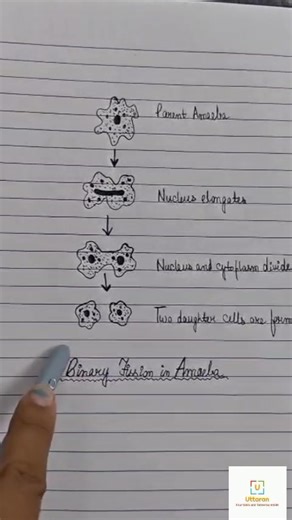 Parent Amoeba
Nucleus elongates
Nucleus and cytoplasm divide
Two daughter cells are form
Binary Fission in Amoeba
Uttoron